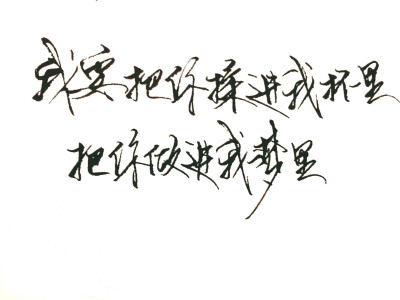 我要把你揉进我怀里
把你做进我梦里